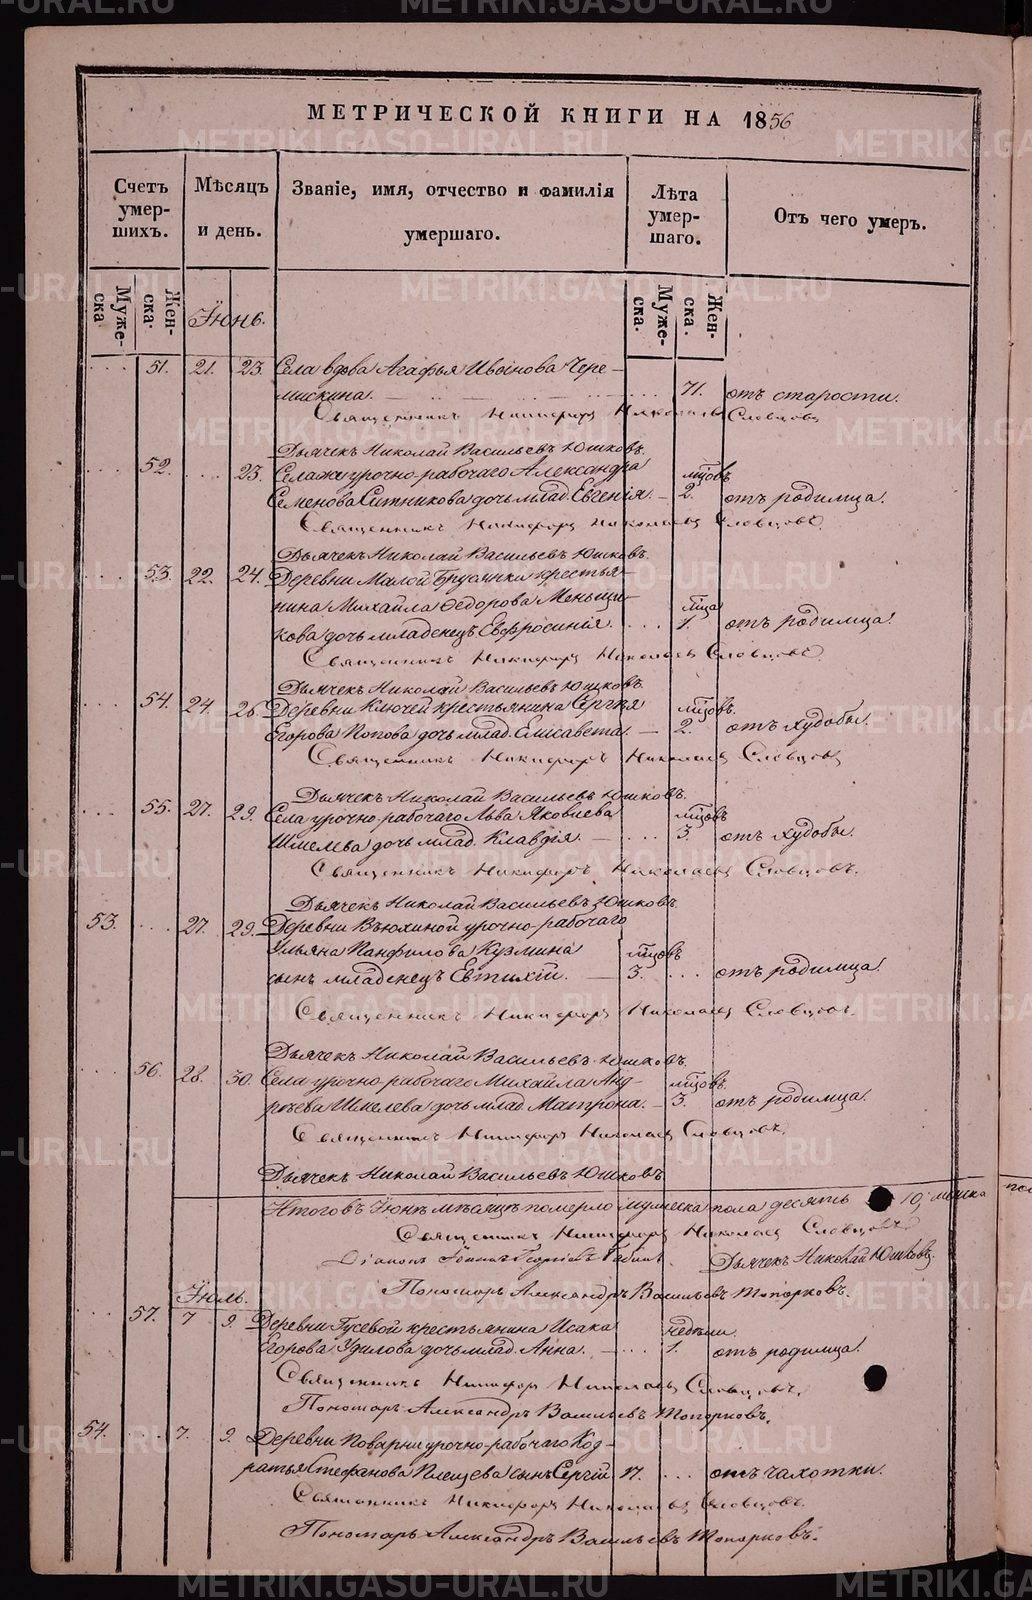 МЕТРИЧЕСКОЙ КНИГИ НА 1856
Счетъ умер- шихъ.
Мѣсяцъ и день.
Званіе, имя, отчество и фамилія умершаго.
Лѣта умер- шаго.
Отъ чего умеръ.
Муже- ска.
Жен- ска.
Муже- ска.
Жен- ска.
Іюнь.
51. 21. 23. Села вдова Агафья Иванова Чере-
мискина. 71. отъ старости.
Священникъ Никифоръ Николаевъ Словцовъ
Дьячекъ Николай Васильевъ Юшковъ.
52. 23. Села урочно-рабочаго Александра мѣцовъ
Семенова Ситникова дочь млад. Евгенія. 2. отъ родимца.
Священникъ Никифоръ Николаевъ Словцовъ.
Дьячекъ Николай Васильевъ Юшковъ.
53. 22. 24. Деревни Малой Брусянки крестья-
нина Михайла Ѳедорова Меньщи- мѣца
кова дочь младенецъ Евфросинія. 1. отъ родимца.
Священникъ Никифоръ Николаевъ Словцовъ
Дьячекъ Николай Васильевъ Юшковъ.
54. 24. 26. Деревни Ключей крестьянина Сергѣя мѣцовъ.
Егорова Попова дочь млад. Елисавета. 2. отъ худобы.
Священникъ Никифоръ Николаевъ Словцовъ
Дьячекъ Николай Васильевъ Юшковъ.
55. 27. 29. Села урочно-рабочаго Льва Яковлева мѣцовъ
Шмелева дочь млад. Клавдія. 3. отъ худобы.
Священникъ Никифоръ Николаевъ Словцовъ.
Дьячекъ Николай Васильевъ Юшковъ.
53. 27. 29. Деревни Вьюхиной урочно-рабочаго
Ульяна Панфилова Кузмина мѣцовъ
сынъ младенецъ Евтихій. 3. отъ родимца.
Священникъ Никифоръ Николаевъ Словцовъ.
Дьячекъ Николай Васильевъ Юшковъ.
56. 28. 30. Села урочно-рабочаго Михайла Анд- мѣцовъ.
рѣева Шмелева дочь млад. Матрона. 3. отъ родимца.
Священникъ Никифоръ Николаевъ Словцовъ.
Дьячекъ Николай Васильевъ Юшковъ
Итого въ Іюнѣ мѣсяцѣ померло мужеска пола десять 10,
Священникъ Никифоръ Николаевъ Словцовъ
Діаконъ Дьячекъ Николай Юшковъ.
Пономарь Александръ Васильевъ Топорковъ.
Іюль.
57. 7 9. Деревни Гусевой крестьянина Исака недѣли.
Егорова Удилова дочь млад. Анна. 1. отъ родимца.
Священникъ Никифоръ Николаевъ Словцовъ.
Пономарь Александръ Васильевъ Топорковъ.
54. 7. 9. Деревни Поварни урочно-рабочаго Код-
ратья Стефанова Плещева сынъ Сергій 17. отъ чахотки.
Священникъ Никифоръ Николаевъ Словцовъ.
Пономарь Александръ Васильевъ Топорковъ.
METRIKI.GASO-URAL.RU